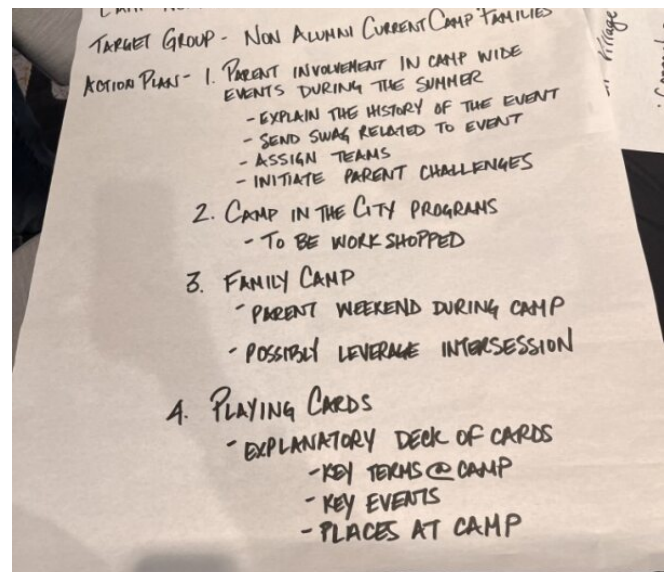 CAMP
TARGET GROUP - NON ALUMNI CURRENT CAMP FAMILIES
ACTION PLAN - 1. PARENT INVOLVEMENT IN CAMP WIDE
EVENTS DURING THE SUMMER
- EXPLAIN THE HISTORY OF THE EVENT
- SEND SWAG RELATED TO EVENT
- ASSIGN TEAMS
- INITIATE PARENT CHALLENGES
2. CAMP IN THE CITY PROGRAMS
- TO BE WORKSHOPPED
3. FAMILY CAMP
- PARENT WEEKEND DURING CAMP
- POSSIBLY LEVERAGE INTERSESSION
4. PLAYING CARDS
- EXPLANATORY DECK OF CARDS
- KEY TERMS @ CAMP
- KEY EVENTS
- PLACES AT CAMP